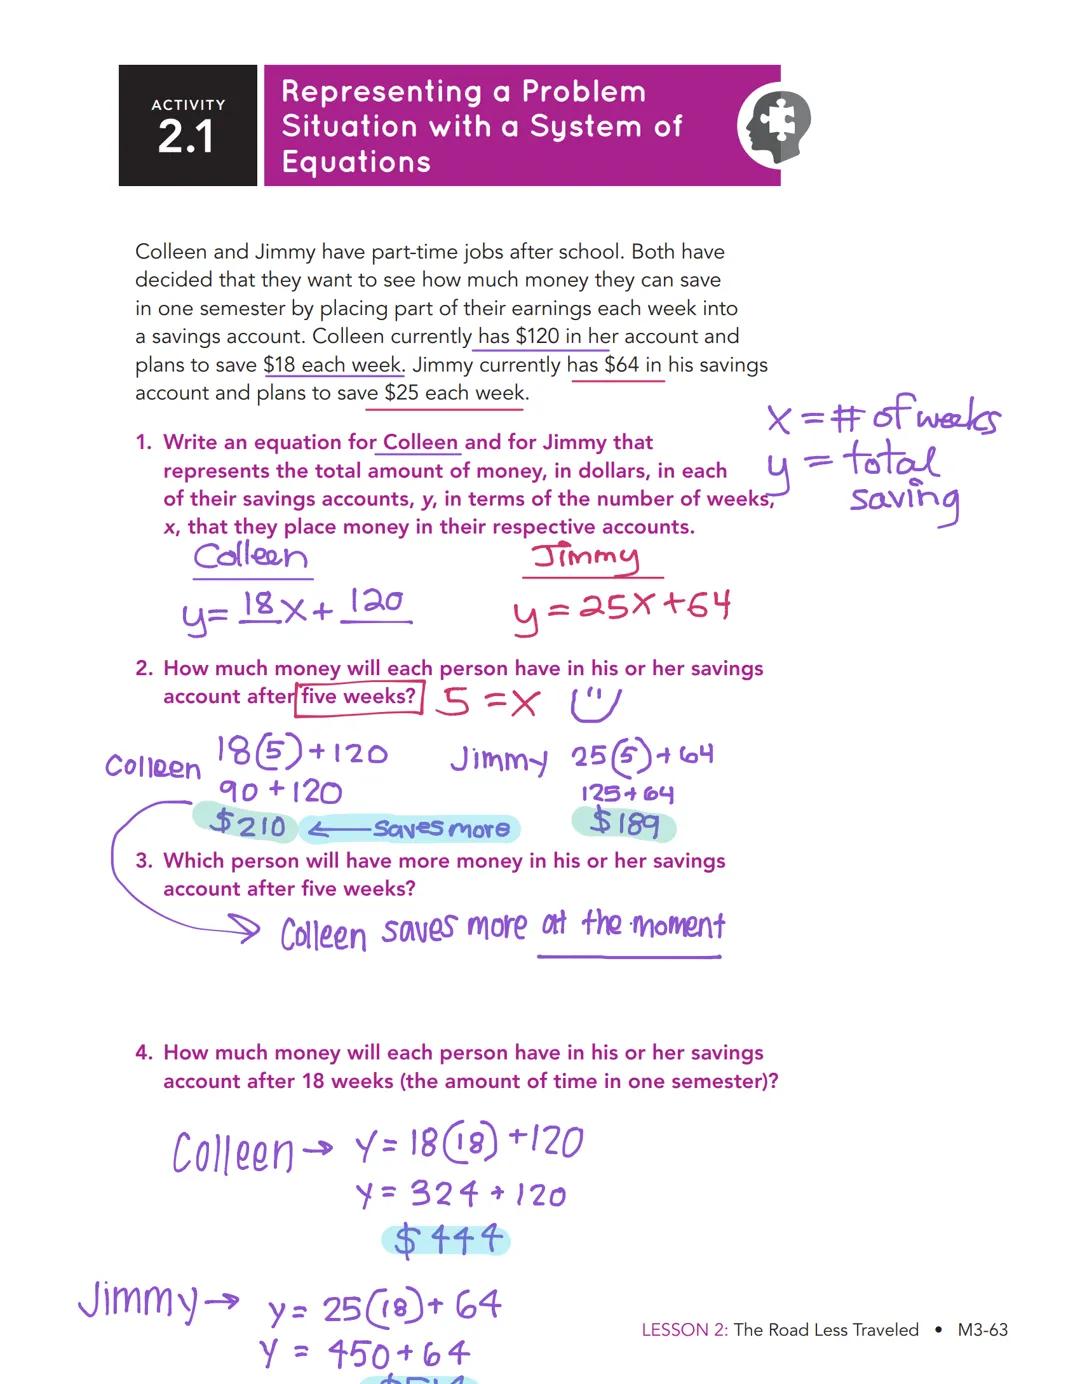 ACTIVITY
2.1
Representing a Problem
Situation with a System of
Equations
Colleen and Jimmy have part-time jobs after school. Both have
decided that they want to see how much money they can save
in one semester by placing part of their earnings each week into
a savings account. Colleen currently has $120 in her account and
plans to save $18 each week. Jimmy currently has $64 in his savings
account and plans to save $25 each week.
x = # of weeks
y = total
saving
1. Write an equation for Colleen and for Jimmy that
represents the total amount of money, in dollars, in each
of their savings accounts, y, in terms of the number of weeks,
x, that they place money in their respective accounts.
Colleen
y = 18x + 120
Jimmy
y = 25x + 64
2. How much money will each person have in his or her savings
account after five weeks? 5 = x
Colleen 18(5) + 120
90 + 120
$210 ← Saves more
Jimmy 25(5) + 64
125 + 64
$189
3. Which person will have more money in his or her savings
account after five weeks?
Colleen saves more at the moment
4. How much money will each person have in his or her savings
account after 18 weeks (the amount of time in one semester)?
Colleen → y = 18(18) + 120
y = 324 + 120
$444
Jimmy → y = 25(18) + 64
y = 450 + 64
LESSON 2: The Road Less Traveled • M3-63